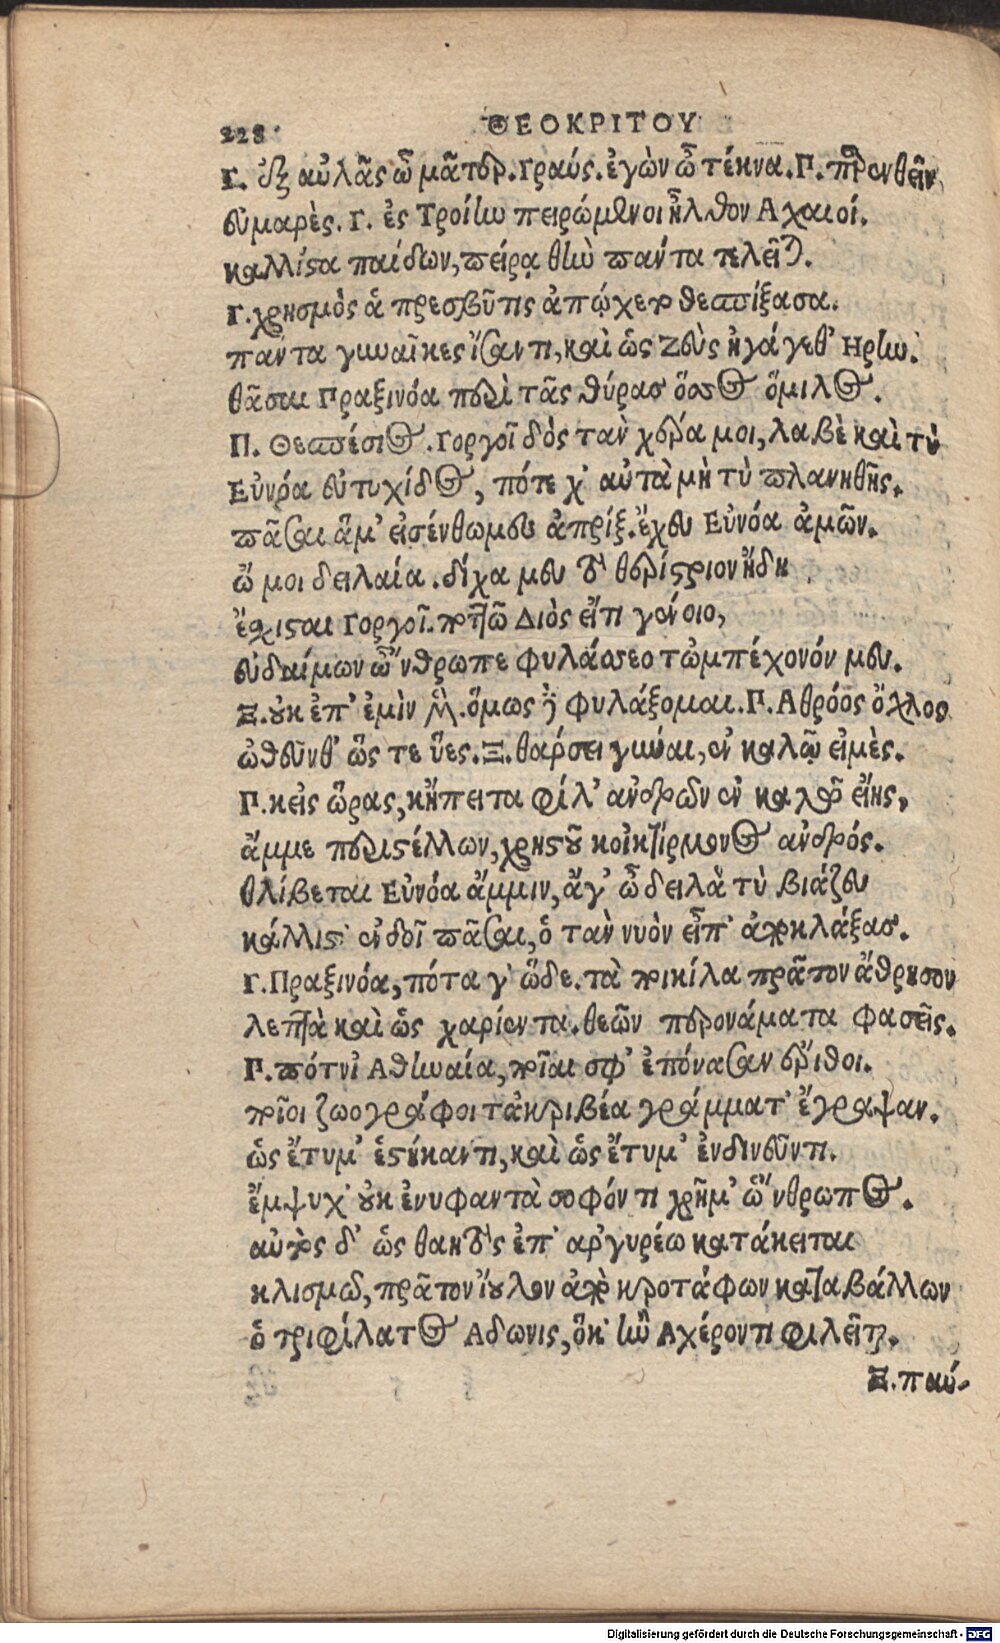 228 ΘΕΟΚΡΙΤΟΥ
Γ. ἐξ αὐλᾶς ὦ μᾶτερ. Γραύς. ἐγὼν ὦ τέκνα. Γ. παρενθεῖν
εὐμαρὲς. Γ. ἐς Τροίην πειρώμενοι ἦλθον Αχαιοί.
καλλίστα παίδων, πείρᾳ θὴν πάντα τελεῖται.
Γ. χρησμὸς ἁ πρεσβῦτις ἀπῴχετο θεσπίξασα.
πάντα γυναῖκες ἴσαντι, καὶ ὡς Ζεὺς ἠγάγεθ' Ηρην.
θᾶσαι Πραξινόα περὶ τᾶς θύρας ὅσσος ὅμιλος.
Π. Θεσπέσιος. Γοργοῖ δὸς τὰν χέρα μοι, λαβὲ καὶ τὺ
Εὐνόα εὐτυχίδος, πότεχ' αὐτὰ μὴ τὺ πλανηθῇς.
πᾶσαι ἅμ' εἰσένθωμες ἀπρίξ. ἔχευ Εὐνόα ἁμῶν.
ὤ μοι δειλαία. δίχα μευ τὸ θερίστριον ἤδη
ἔσχισται Γοργοῖ. ποττῶ Διὸς εἴτι γένοιο,
εὐδαίμων ὤνθρωπε φυλάσσεο τὠμπέχονόν μευ.
Ξ. οὐκ ἐπ' ἐμὶν μέν. ὅμως δὲ φυλάξομαι. Γ. Αθρόος ὄχλος
ὠθεῦνθ' ὥς τε ὕες. Ξ. θάρσει γύναι, ἐν καλῷ εἰμὲς.
Γ. κεἰς ὥρας, κἤπειτα φίλ' ἀνδρῶν ἐν καλῷ εἴης,
ἄμμε περιστέλλων, χρηστοῦ κοἰκτίρμονος ἀνδρός.
θλίβεται Εὐνόα ἄμμιν, ἄγ' ὦ δειλὰ τὺ βιάζευ
κάλλιστ' ἐνδοῖ πᾶσαι, ὁ τὰν νυὸν εἶπ' ἀποκλάξας.
Γ. Πραξινόα, πόταγ' ὧδε. τὰ ποικίλα πρᾶτον ἄθρησον
λεπτὰ καὶ ὡς χαρίεντα. θεῶν περονάματα φασεῖς.
Γ. πότνι Αθηναία, ποῖαι σφ' ἐπόνασαν ἔριθοι.
ποῖοι ζωογράφοι τἀκριβέα γράμματ' ἔγραψαν.
ὡς ἔτυμ' ἑστήκαντι, καὶ ὡς ἔτυμ' ἐνδινεῦντι.
ἔμψυχ' οὐκ ἐνυφαντὰ σοφόν τι χρῆμ' ὤνθρωπος.
αὐτὸς δ' ὡς θαητὸς ἐπ' ἀργυρέω κατάκειται
κλισμῶ, πρᾶτον ἴουλον ἀπὸ κροτάφων καταβάλλων
ὁ τριφίλατος Αδωνις, ὃκ' ἢν Αχέροντι φιλεῖται.
Ξ. παύ-
Digitalisierung gefördert durch die Deutsche Forschungsgemeinschaft - DFG